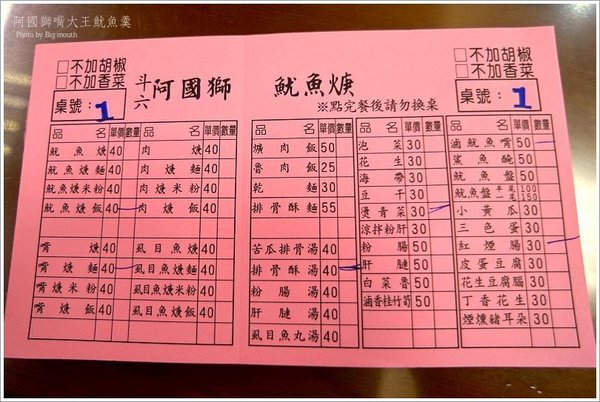 阿國獅嘴大王魷魚羹
Photo by Big mouth
□不加胡椒
□不加香菜
桌號：1
斗六 阿國獅
魷魚焿
※點完餐後請勿換桌
□不加胡椒
□不加香菜
桌號：1
品名 單價 數量
魷魚焿 40
魷魚焿麵 40
魷魚焿米粉 40
魷魚焿飯 40
嘴焿 40
嘴焿麵 40
嘴焿米粉 40
嘴焿飯 40
品名 單價 數量
肉焿 40
肉焿麵 40
肉焿米粉 40
肉焿飯 40
虱目魚焿 40
虱目魚焿麵 40
虱目魚焿米粉 40
虱目魚焿飯 40
品名 單價 數量
爌肉飯 50
魯肉飯 25
乾麵 30
排骨酥麵 55
苦瓜排骨湯 40
排骨酥湯 40
粉腸湯 40
肝腱湯 40
虱目魚丸湯 40
品名 單價 數量
泡菜 30
花生 30
海帶 30
豆干 30
燙青菜 30
涼拌粉肝 30
粉腸 50
肝腱 50
白菜魯 50
滷香桂竹筍 50
品名 單價 數量
滷魷魚嘴 50
鯊魚醃 50
魷魚盤 50
魷魚盤 半尾 100 一尾 150
小黃瓜 30
三色蛋 30
紅煙腸 30
皮蛋豆腐 30
花生豆腐腦 30
丁香花生 30
煙燻豬耳朵 30